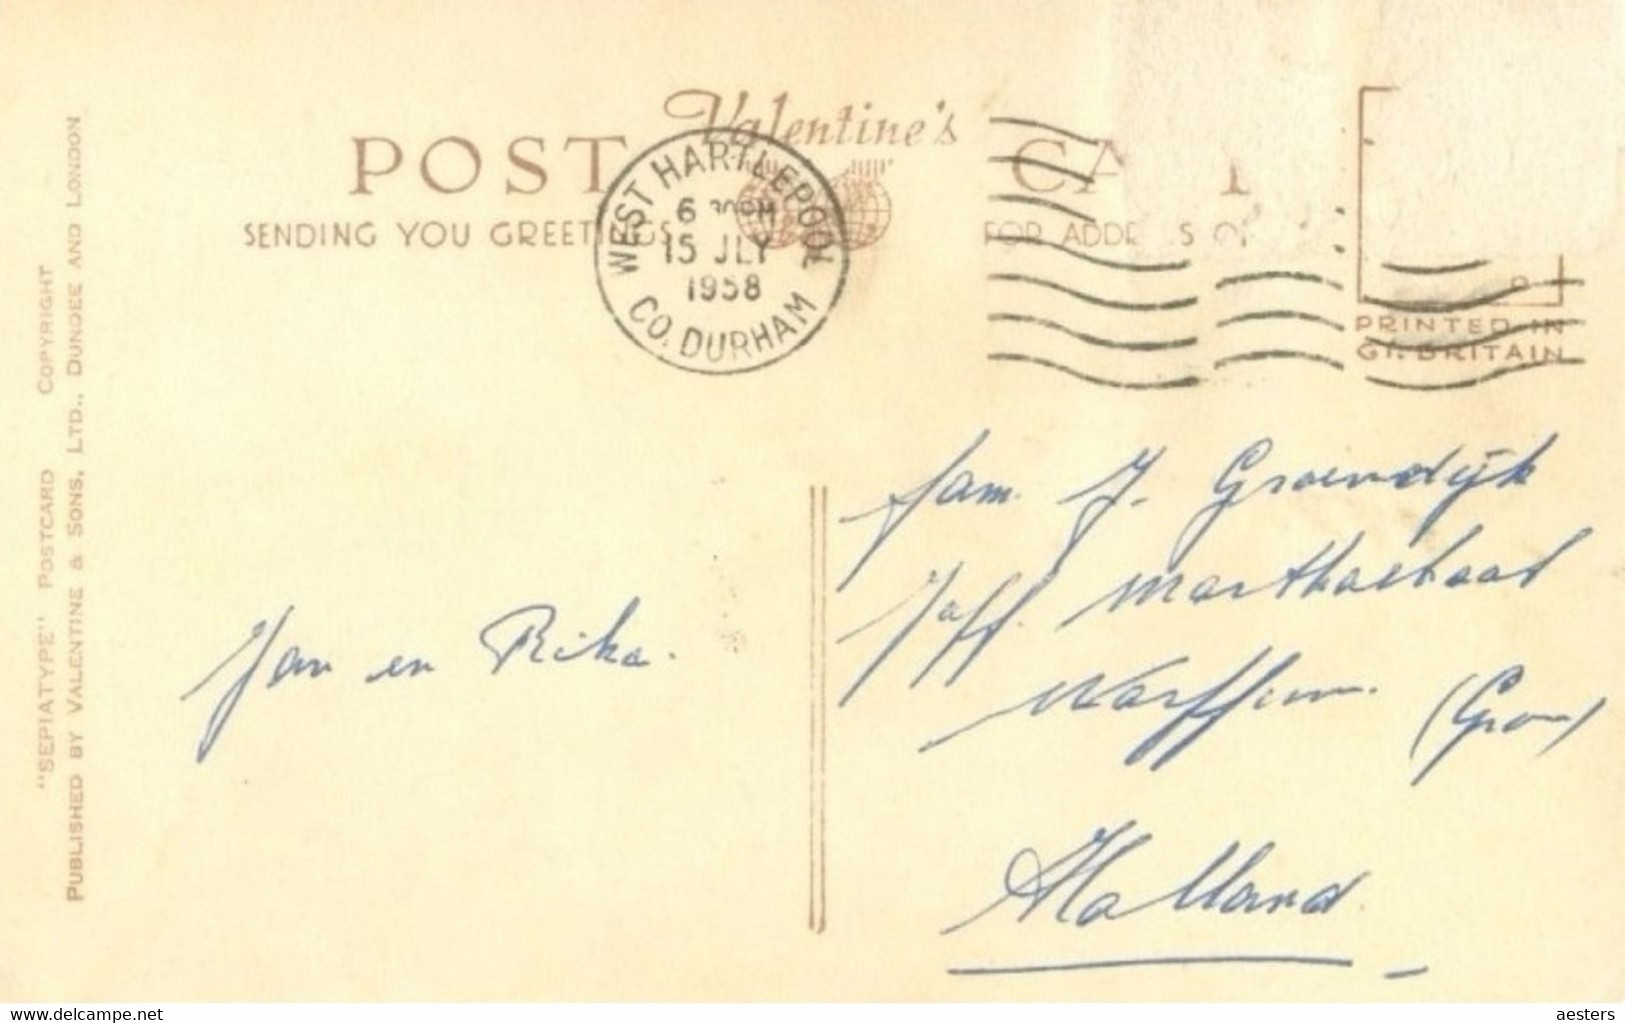 "SEPIATYPE" POSTCARD COPYRIGHT
PUBLISHED BY VALENTINE & SONS, LTD., DUNDEE AND LONDON
Valentine's
POST CA
SENDING YOU GREETINGS
FOR ADDRESS O
WEST HARTLEPOOL
6 30PM
15 JLY
1958
CO. DURHAM
PRINTED IN
GT. BRITAIN
Jan en Rika.
fam. J. Groendijk
Jaff. Marthastraat
Warffum. (Gron)
Holland.
delcampe.net
aesters